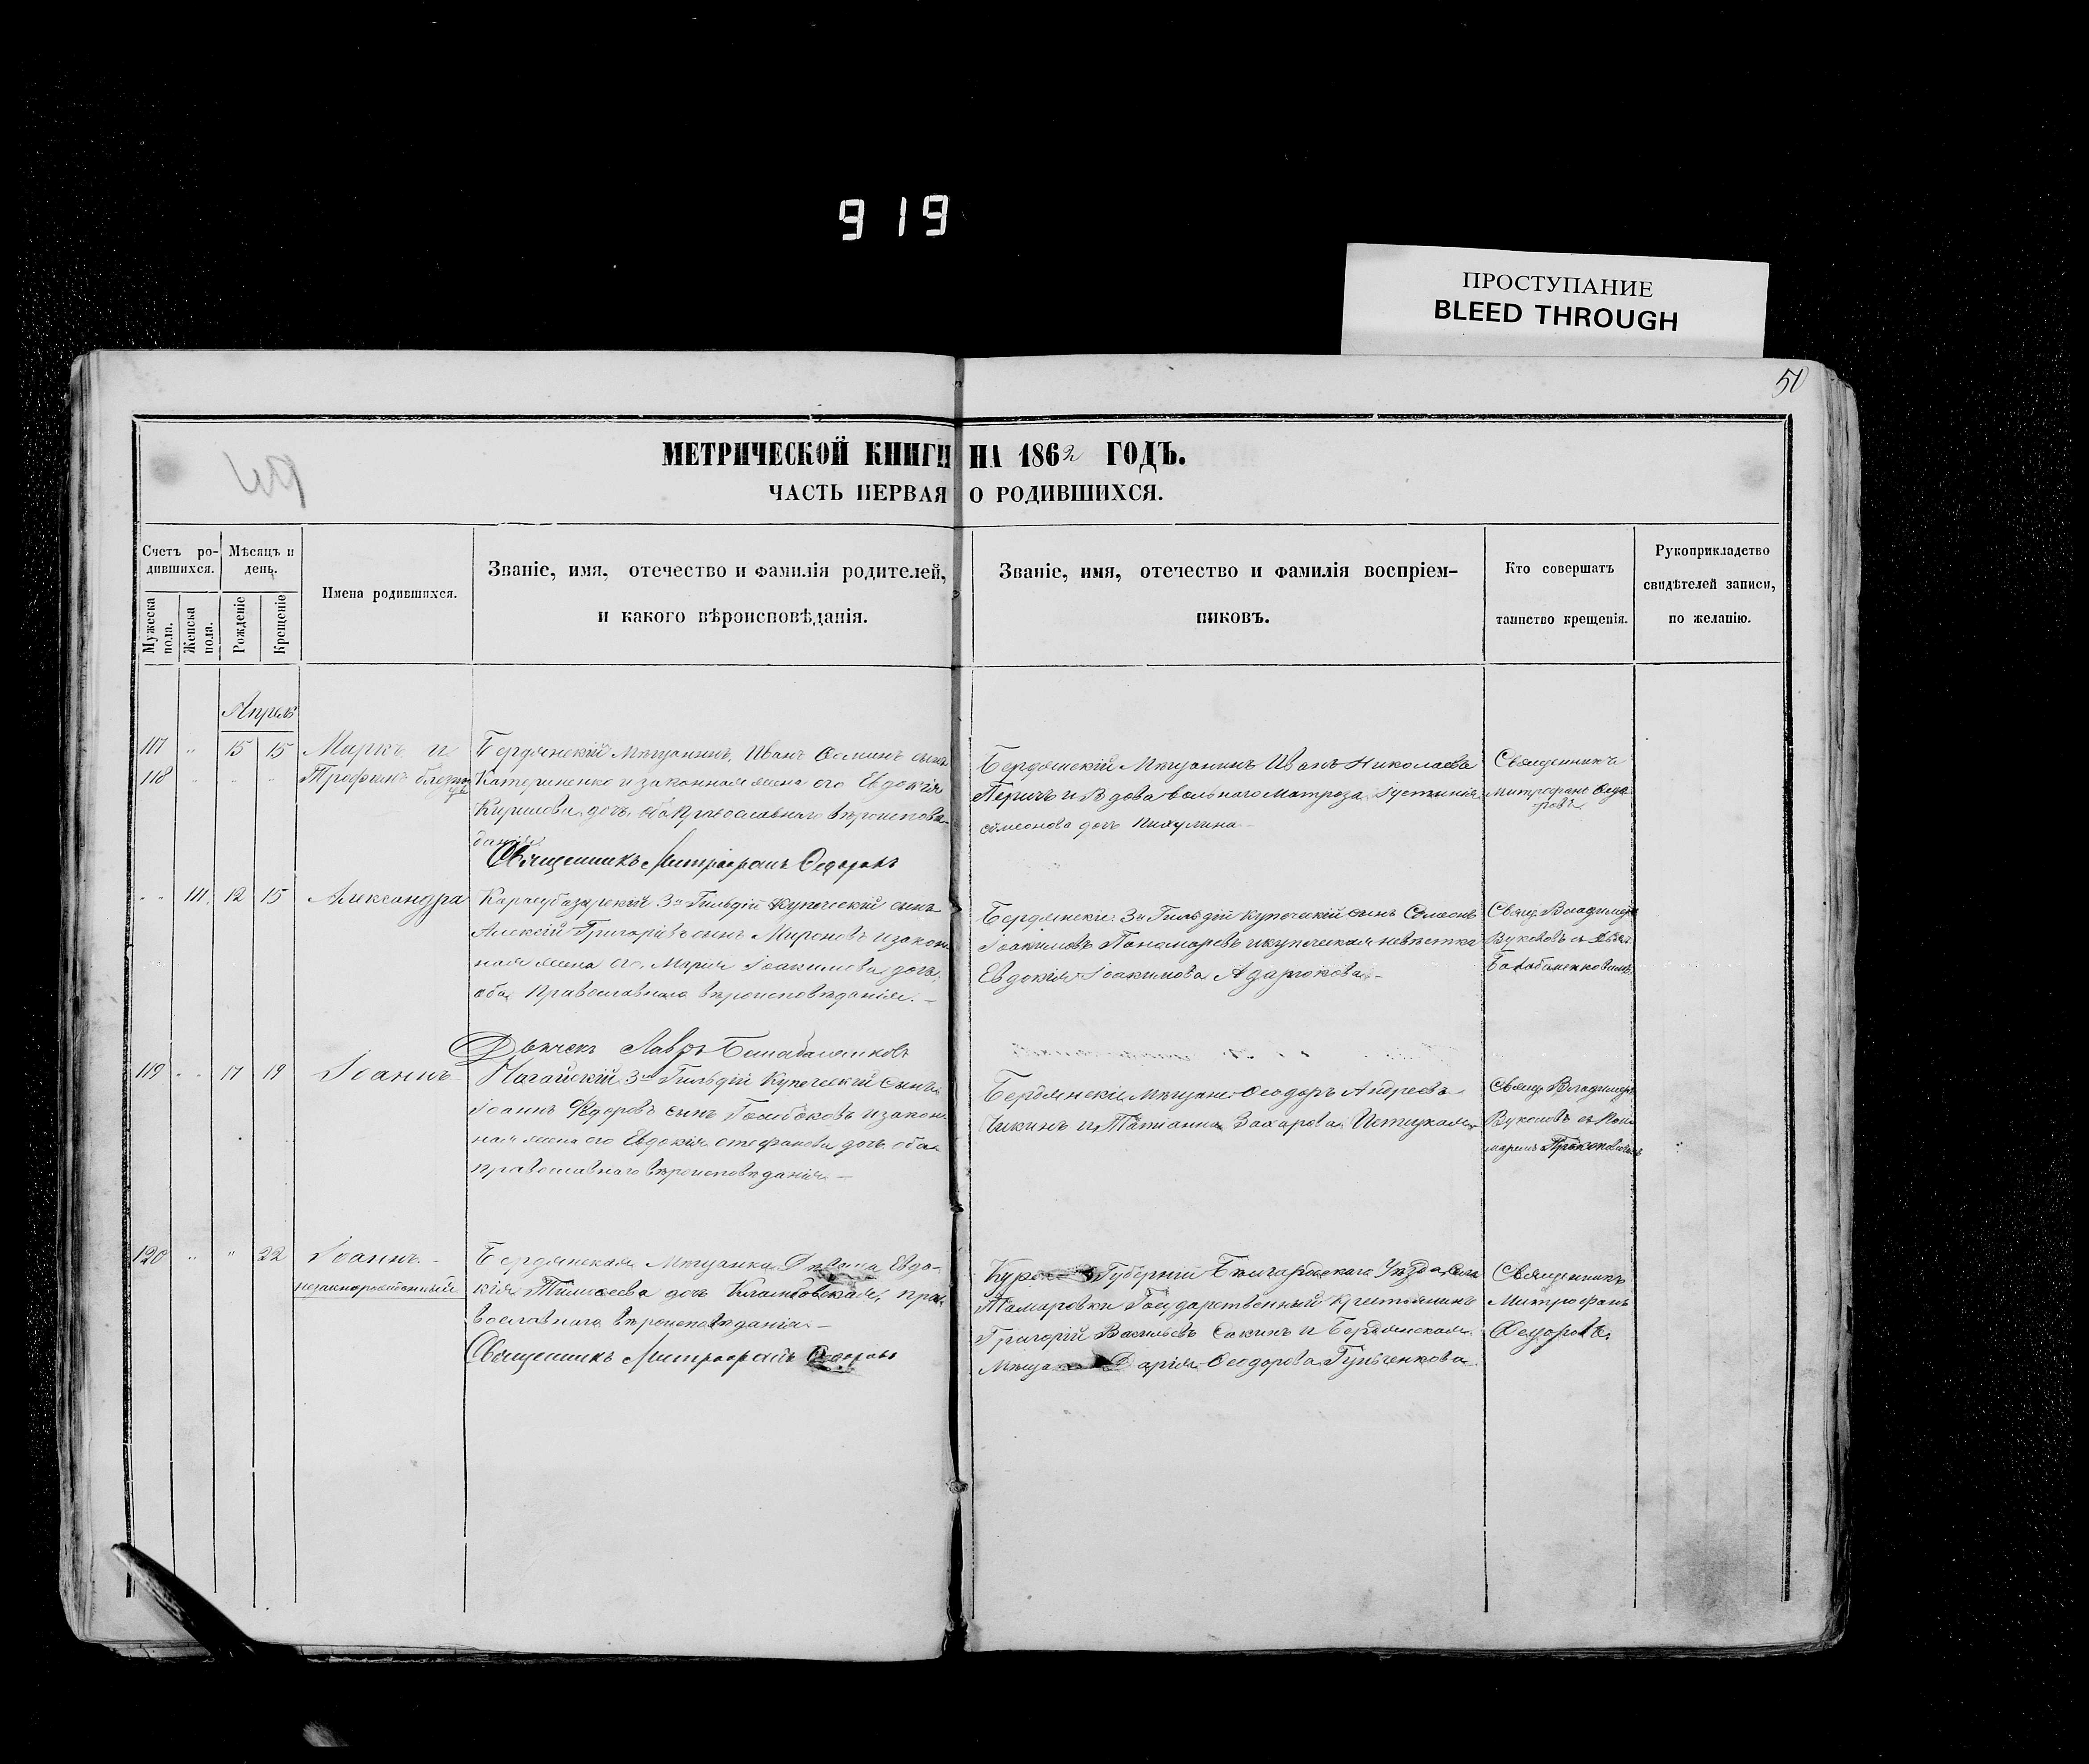 919
ПРОСТУПАНИЕ
BLEED THROUGH
51
МЕТРИЧЕСКОЙ КНИГИ НА 1862 ГОДЪ.
ЧАСТЬ ПЕРВАЯ О РОДИВШИХСЯ.
Счетъ ро-
дившихся.
Мужеска пола.
Женска пола.
Мѣсяцъ и
день.
Рожденіе
Крещеніе
Имена родившихся.
Званіе, имя, отечество и фамилія родителей,
и какого вѣроисповѣданія.
Званіе, имя, отечество и фамилія воспріем-
никовъ.
Кто совершатъ
таинство крещенія.
Рукоприкладство
свидѣтелей записи,
по желанію.
Апрель
117 " 15 15 Маркъ и
118 Трофимъ близне
цы
Бердянскій Мѣщанинъ Иванъ сынъ
Катериненко и законная жена его Евдокія
Кирилова дочь, оба Православнаго вѣроисповѣ
данія
Священникъ Митрофанъ Федоровъ
Бердянскій Мѣщанинъ Иванъ Николаевъ
и Вдова вольнаго Матроза Іустинія
Симеонова дочь Пихулина
Священникъ
Митрофанъ Федо
ровъ
111 12 15 Александра
Карасубазарскій 3й Гильдіи Купеческій сынъ
Алексѣй Григорьевъ сынъ Мироновъ и закон
ная жена его Марія Іоакимова дочь,
оба Православнаго вѣроисповѣданія.
Дьячекъ Лавръ
Бердянскіе 3й Гильдіи купеческій сынъ Симеонъ
Іоакимовъ Панамаревъ и купеческая невѣстка
Евдокія Іоакимова
Свящ. Владимиръ
Вуколовъ съ
119 17 19 Іоаннъ
Нагайскій 3й Гильдіи Купеческій сынъ
Іоаннъ Федоровъ сынъ и закон
ная жена его Евдокія Стефанова дочь, оба
православнаго вѣроисповѣданія
Бердянскіе Мѣщане Феодоръ Андреевъ
Чикинъ и Татіанна Захарова
Свящ. Владимиръ
Вуколовъ съ Поно
маремъ
120 " " 22 Іоаннъ
незаконорожденный
Бердянская Мѣщанка Дѣвица Евдо-
кія дочь пра
вославнаго вѣроисповѣданія
Священникъ Митрофанъ Федоровъ
Губерніи Бѣлгородскаго Уѣзда Села
Тамаровки Государственный Крестьянинъ
Григорій Васильевъ Сакинъ и Бердянская
Дарія Феодорова
Священникъ
Митрофанъ
Федоровъ